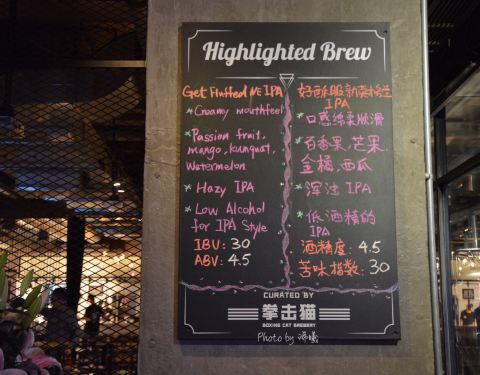 Highlighted Brew
Get Fluffed NE IPA
* Creamy mouthfeel
* Passion fruit,
mango, kumquat,
Watermelon
* Hazy IPA
* Low Alcohol
for IPA Style
IBV: 30
ABV: 4.5
好酥服新英格兰
IPA
* 口感绵柔顺滑
* 百香果,芒果,
金桔,西瓜
* 浑浊 IPA
* 低酒精的
IPA
酒精度: 4.5
苦味指数: 30
CURATED BY
拳击猫
BOXING CAT BREWERY
Photo by